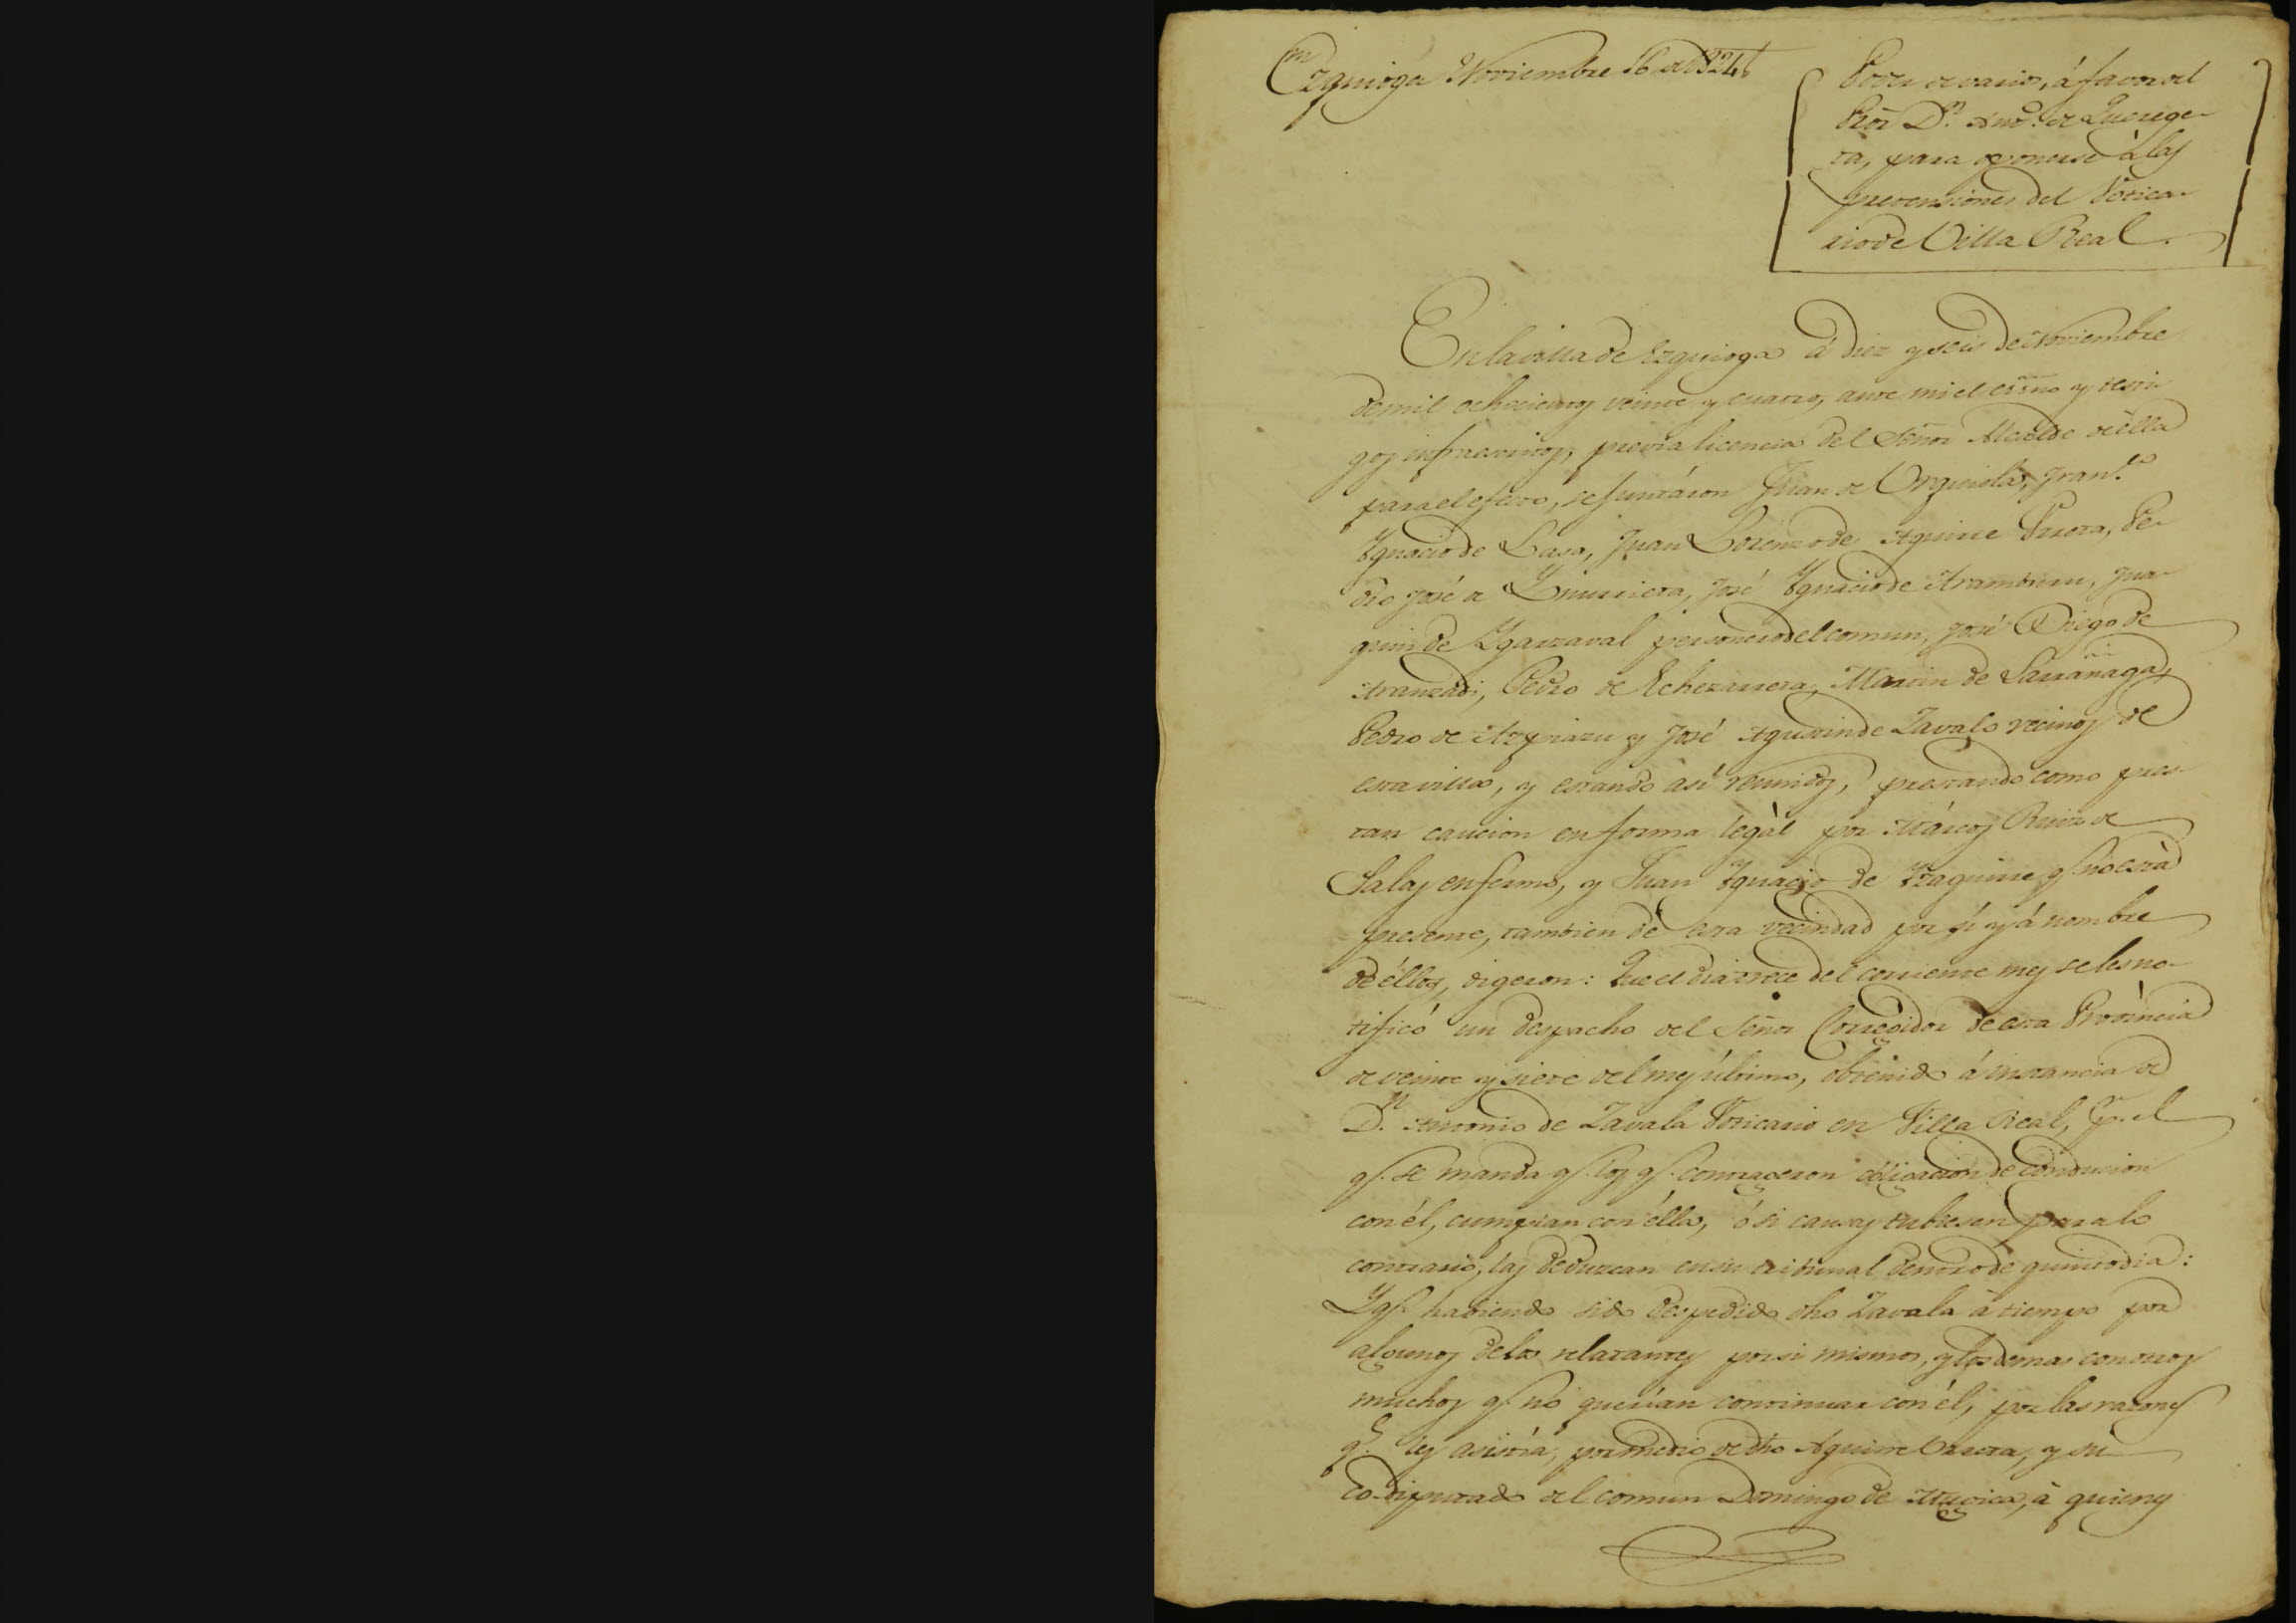 Ezquioga Noviembre 16 de 1824
Poder de varios, á favor del
Pror. Dn. Anto. de Querege-
ta, para oponerse à las
pretensiones del Botica-
rio de Villa Real.
En la villa de Ezquioga á diez y seis de Noviembre
de mil ochocientos veinte y cuatro, ante mi el essno y testi-
gos infraescritos, previa licencia del Señor Alcalde de ella
para el efecto, se juntáron Juan de Urquiola, Franco.
Ygnacio de Lasa, Juan Lorenzo de Aguirre Urreta, Pe-
dro José de Ymurrieta, José Ygnacio de Aramburu, Jua-
quin de Ygarzaval personero del comun, José Diego de
Aranzadi, Pedro de Echezarreta, Martin de Larrañaga,
Pedro de Azpiazu y José Agustin de Zavalo vecinos de
esta villa, y estando así reunidos, prestando como pres-
tan caucion en forma legàl por Márcos Ruiz de
Salas enfermo, y Juan Ygnacio de Yzaguirre qe. nò està
presente, tambien de esta vecindad por sí y á nombre
de éllos, digeron: Que el dia trece del corriente mes se les no-
tificó un despacho del Señor Corregidor de esta Província
de veinte y siete del mes último, obtenido á instancia de
Dn. Antonio de Zavala Boticario en Villa Real, pr. el
qe. se manda qe. los qe. contrageron obligacion de conducion
con él, cumplan con élla, ó si causas tubiesen para lo
contrario, las deduzcan en su tribunal dentro de quinto dia:
Y qe. habiendo sido despedido dho Zavala à tiempo por
algunos de los relatantes por si mismos, y los demas con otros
muchos qe. nò querían continuar con él, por las razones
qe. les asistía, por medio de dho Aguirre Urreta, y su
Co-diputado del comun Domingo de Mugica, à quienes